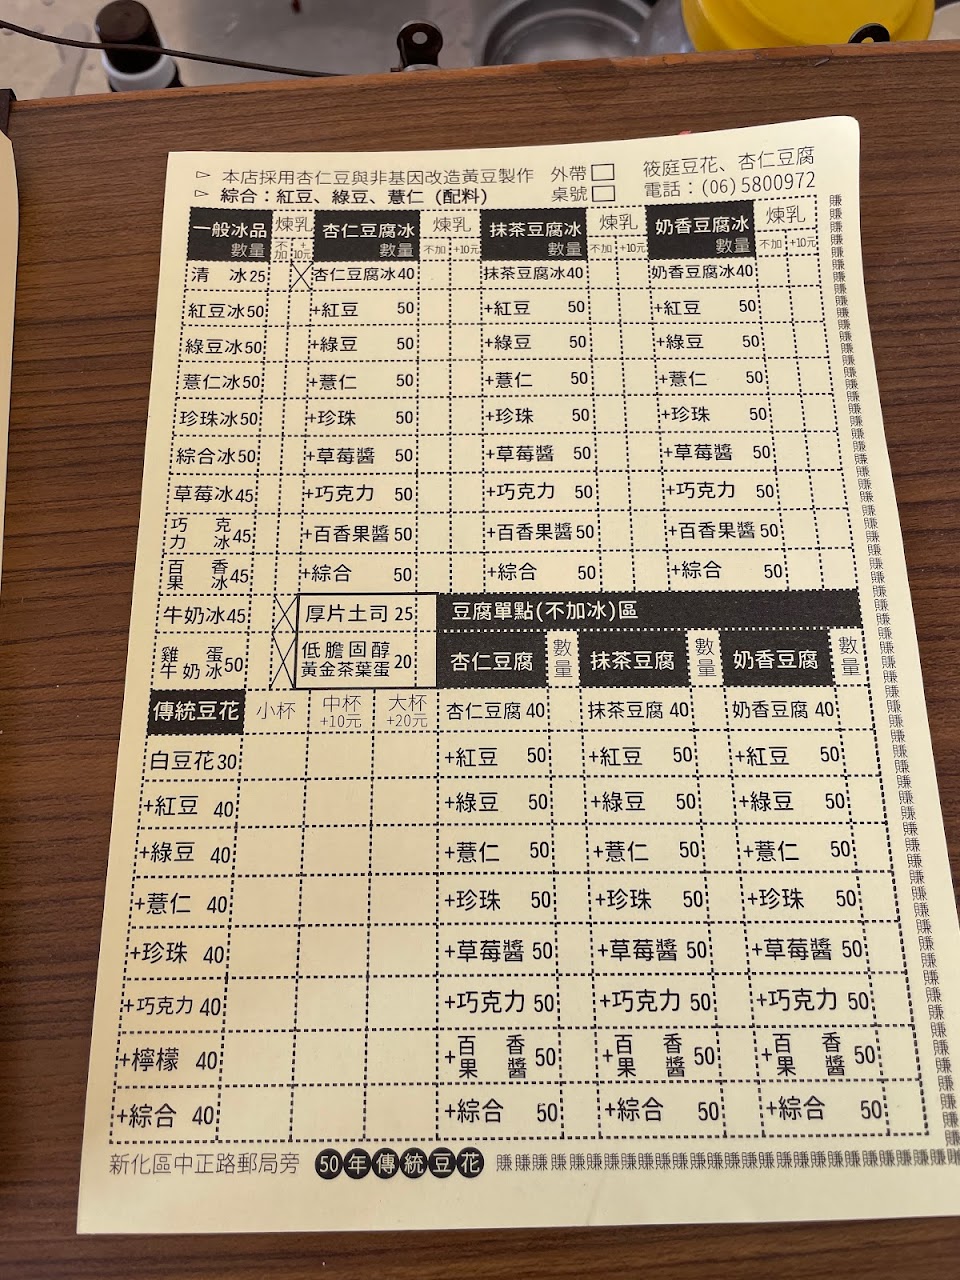 ▻ 本店採用杏仁豆與非基因改造黃豆製作 外帶□ 筱庭豆花、杏仁豆腐
▻ 綜合：紅豆、綠豆、薏仁 (配料) 桌號□ 電話：(06)5800972
一般冰品 數量 煉乳 不加 +10元 杏仁豆腐冰 數量 煉乳 不加 +10元 抹茶豆腐冰 數量 煉乳 不加 +10元 奶香豆腐冰 數量 煉乳 不加 +10元
清冰25 杏仁豆腐冰40 抹茶豆腐冰40 奶香豆腐冰40
紅豆冰50 +紅豆 50 +紅豆 50 +紅豆 50
綠豆冰50 +綠豆 50 +綠豆 50 +綠豆 50
薏仁冰50 +薏仁 50 +薏仁 50 +薏仁 50
珍珠冰50 +珍珠 50 +珍珠 50 +珍珠 50
綜合冰50 +草莓醬 50 +草莓醬 50 +草莓醬 50
草莓冰45 +巧克力 50 +巧克力 50 +巧克力 50
巧克力冰45 +百香果醬50 +百香果醬50 +百香果醬50
百香果冰45 +綜合 50 +綜合 50 +綜合 50
牛奶冰45 厚片土司 25 豆腐單點(不加冰)區
雞蛋牛奶冰50 低膽固醇黃金茶葉蛋20 杏仁豆腐 數量 抹茶豆腐 數量 奶香豆腐 數量
傳統豆花 小杯 中杯+10元 大杯+20元 杏仁豆腐 40 抹茶豆腐 40 奶香豆腐 40
白豆花30 +紅豆 50 +紅豆 50 +紅豆 50
+紅豆 40 +綠豆 50 +綠豆 50 +綠豆 50
+綠豆 40 +薏仁 50 +薏仁 50 +薏仁 50
+薏仁 40 +珍珠 50 +珍珠 50 +珍珠 50
+珍珠 40 +草莓醬 50 +草莓醬 50 +草莓醬 50
+巧克力 40 +巧克力 50 +巧克力 50 +巧克力 50
+檸檬 40 +百香果醬 50 +百香果醬 50 +百香果醬 50
+綜合 40 +綜合 50 +綜合 50 +綜合 50
新化區中正路郵局旁 50年傳統豆花